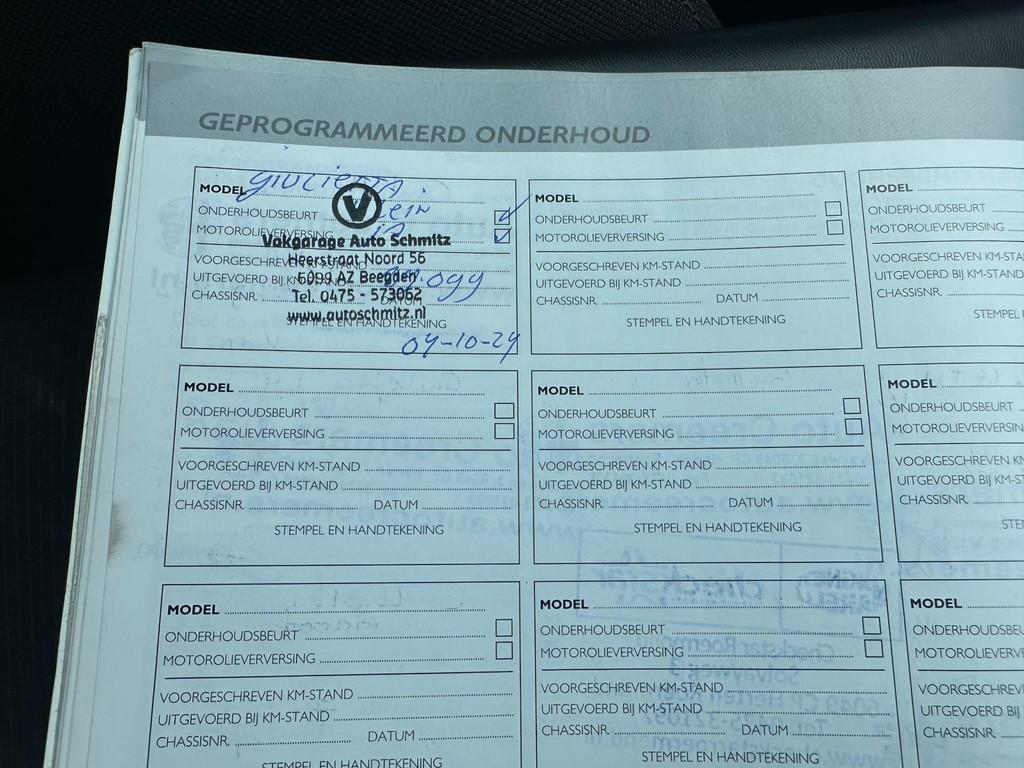 GEPROGRAMMEERD ONDERHOUD
MODEL GIULIETTA
ONDERHOUDSBEURT
MOTOROLIEVERVERSING
V
Vakgarage Auto Schmitz
Heerstraat Noord 56
6099 AZ Beegden
Tel. 0475 - 573062
www.autoschmitz.nl
VOORGESCHREVEN KM-STAND
UITGEVOERD BIJ KM-STAND
CHASSISNR. DATUM
STEMPEL EN HANDTEKENING
04-10-24
MODEL
ONDERHOUDSBEURT
MOTOROLIEVERVERSING
VOORGESCHREVEN KM-STAND
UITGEVOERD BIJ KM-STAND
CHASSISNR. DATUM
STEMPEL EN HANDTEKENING
MODEL
ONDERHOUDSBEURT
MOTOROLIEVERVERSI
VOORGESCHREVEN KM-S
UITGEVOERD BIJ KM-STAND
CHASSISNR.
STEMPEL
MODEL
ONDERHOUDSBEURT
MOTOROLIEVERVERSING
VOORGESCHREVEN KM-STAND
UITGEVOERD BIJ KM-STAND
CHASSISNR. DATUM
STEMPEL EN HANDTEKENING
MODEL
ONDERHOUDSBEURT
MOTOROLIEVERVERSING
VOORGESCHREVEN KM-STAND
UITGEVOERD BIJ KM-STAND
CHASSISNR. DATUM
STEMPEL EN HANDTEKENING
MODEL
ONDERHOUDSBEURT
MOTOROLIEVERVERSIN
VOORGESCHREVEN KM
UITGEVOERD BIJ KM-STA
CHASSISNR.
STE
MODEL
ONDERHOUDSBEURT
MOTOROLIEVERVERSING
VOORGESCHREVEN KM-STAND
UITGEVOERD BIJ KM-STAND
CHASSISNR. DATUM
STEMPEL EN HANDTEKENING
MODEL
ONDERHOUDSBEURT
MOTOROLIEVERVERSING
VOORGESCHREVEN KM-STAND
UITGEVOERD BIJ KM-STAND
CHASSISNR. DATUM
STEMPEL EN HANDTEKENING
MODEL
ONDERHOUDSBEU
MOTOROLIEVERVE
VOORGESCHREVEN
UITGEVOERD BIJ KM
CHASSISNR.